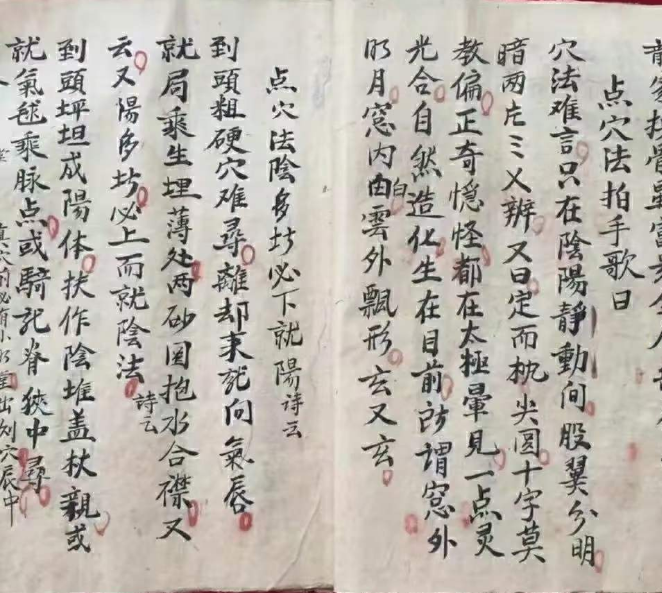 点穴法拍手歌曰
穴法难言只在陰陽靜動间股翼分明
暗两片三义辨又曰定而枕尖圆十字莫
教偏正奇憶怪都在太極暈見一点灵
光合自然造化生在目前所謂窓外
明月窓内白由雲外飄形玄又玄
点穴法陰多坊必下就陽詩云
到頭粗硬穴难尋離却来龍向氣唇
就局乘生埋薄处两砂圆抱水合襟又
云又陽多坊必上而就陰法詩云
到頭坪坦成陽体扶作陰堆盖杖親或
就氣毬乘脉点或騎龍脊狹中尋